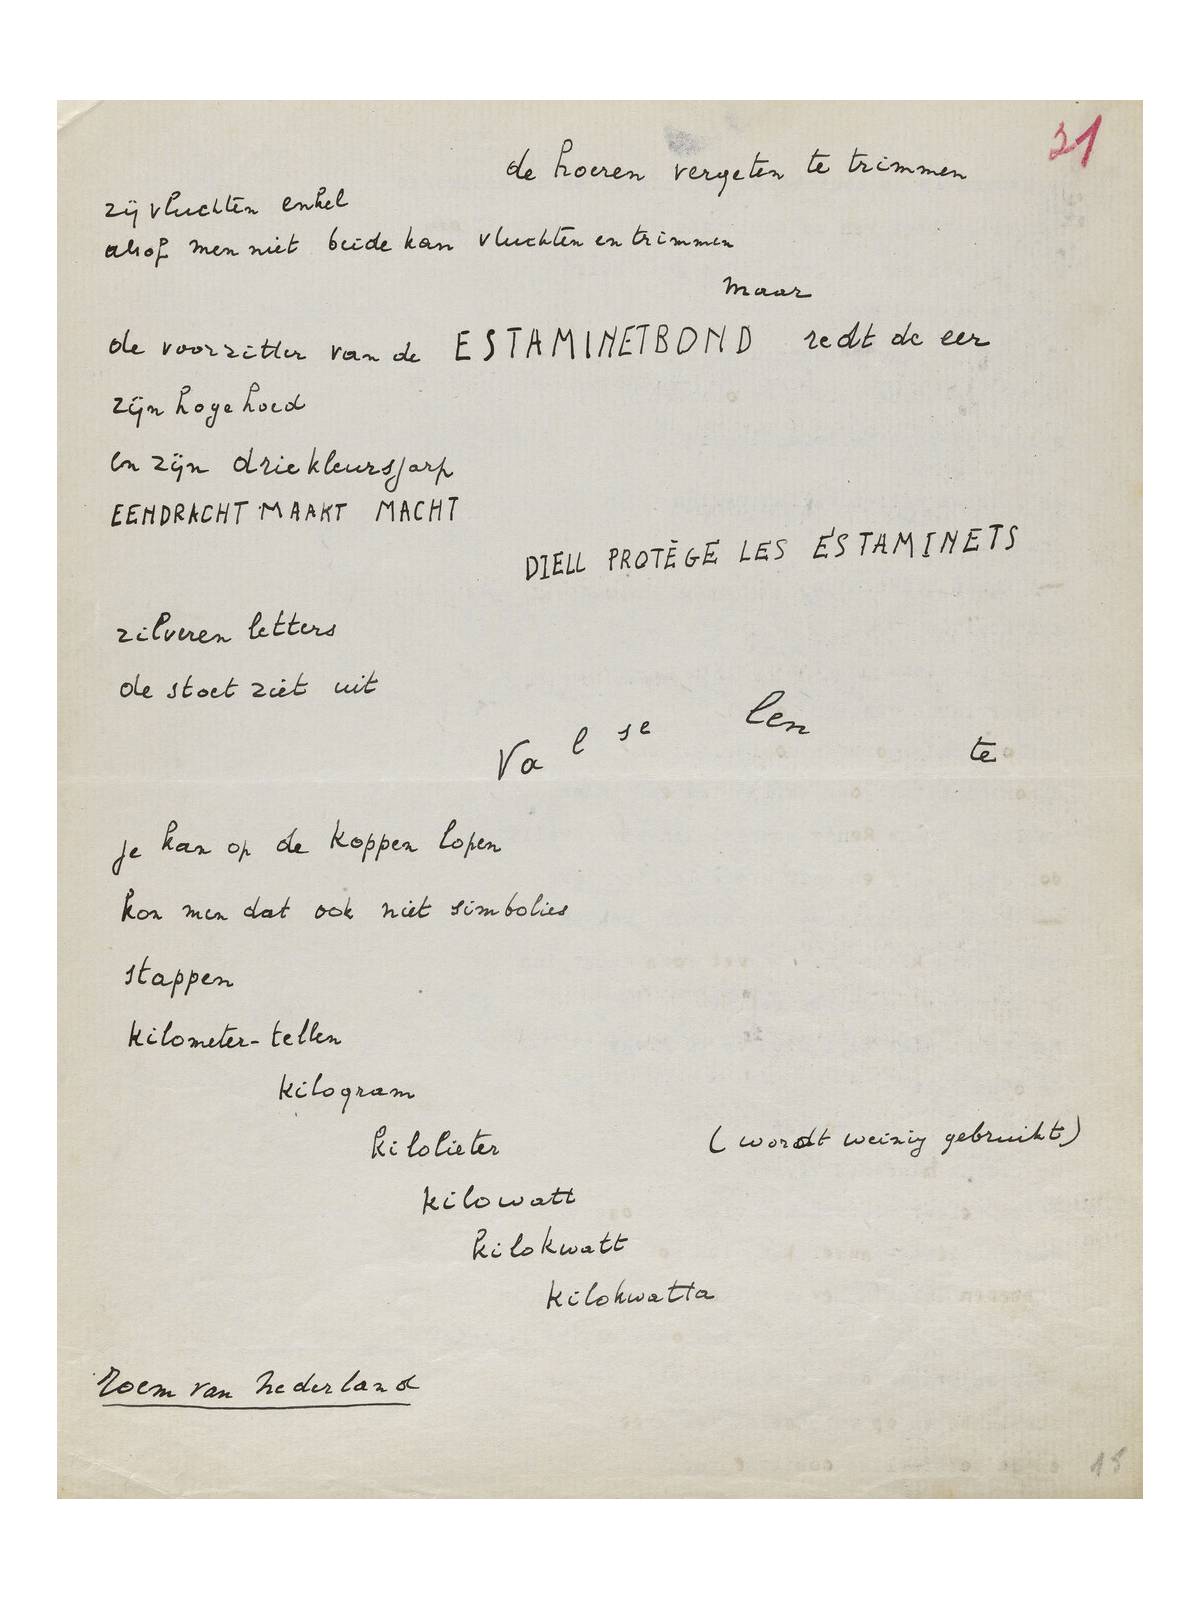 31
de hoeren vergeten te trimmen
zij vluchten enkel
alsof men niet beide kan vluchten en trimmen
maar
de voorzitter van de ESTAMINETBOND redt de eer
zijn hoge hoed
en zijn driekleursjarp
EENDRACHT MAAKT MACHT
DIEU PROTÈGE LES ESTAMINETS
zilveren letters
de stoet ziet uit
Va l se len te
je kan op de koppen lopen
kon men dat ook niet simbolies
stappen
kilometer-tellen
kilogram
kilolieter (wordt weinig gebruikt)
kilowatt
kilokwatt
kilokwatta
Roem van Nederland
15